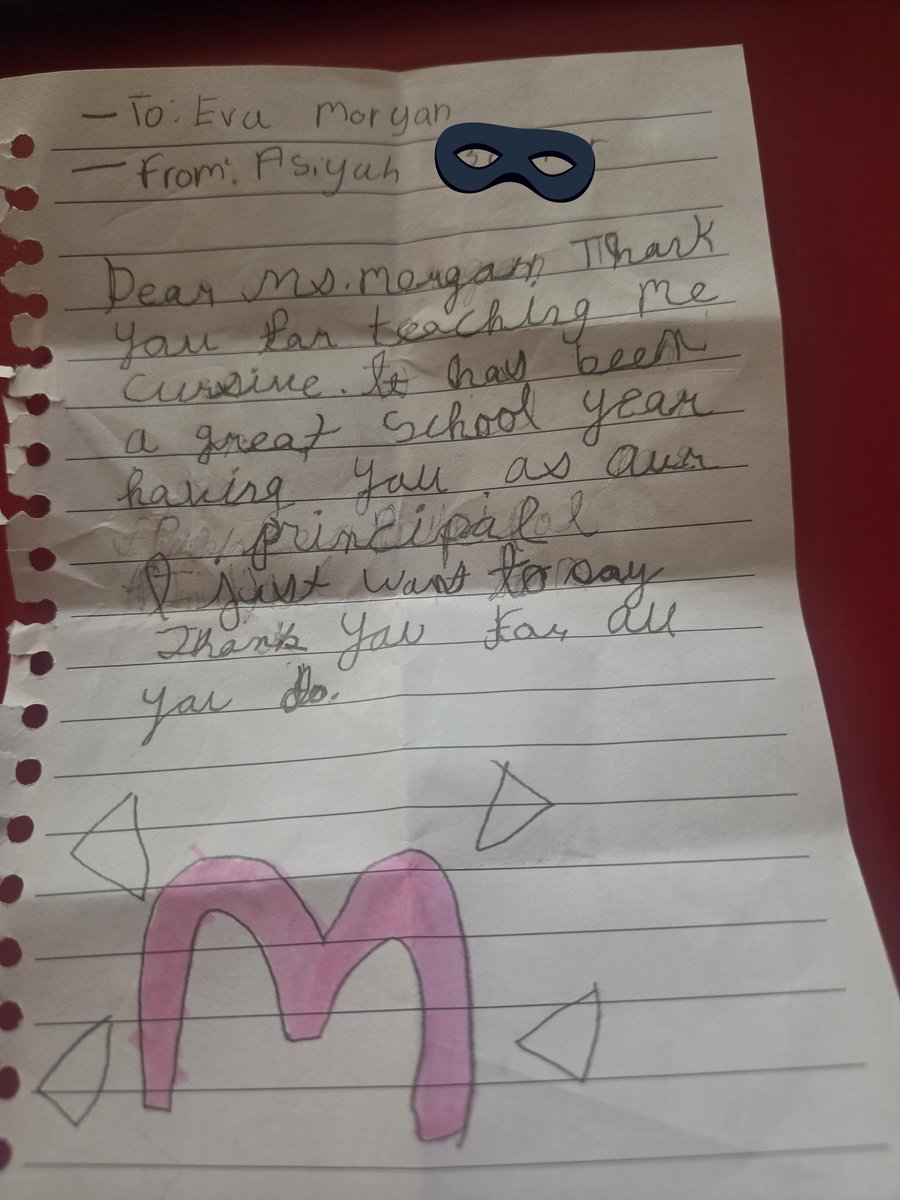 - To: Eva Morgan
- From: Asiyah
Dear Ms. Morgan, Thank
you for teaching me
cursive. It has been
a great school year
having you as our
principal
I just want to say
Thank you for all
you do.
M